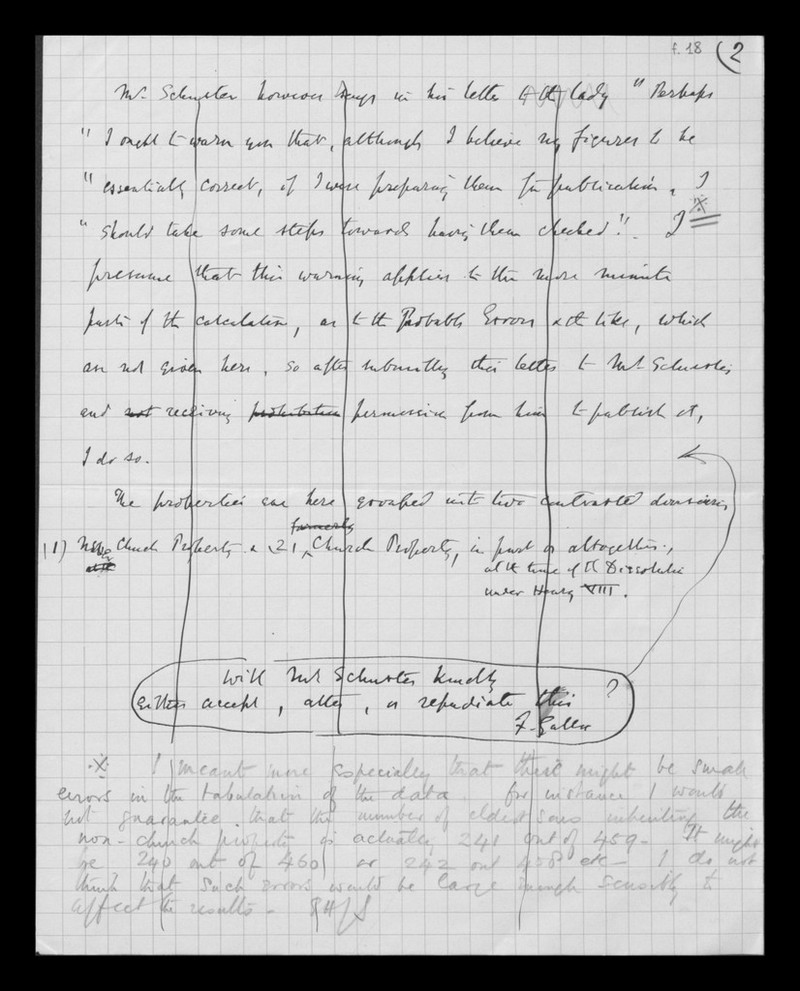 f. 18 (2
Mr. Schuster however says in his letter to the lady "Perhaps
" I ought to warn you that, although I believe my figures to be
" essentially correct, if I were preparing them for publication, I
" should take some steps towards having them checked". I
presume that this warning applies to the more minute
parts of the calculation, as to the Probable Errors & the like, which
are not given here, so after submitting this letter to Mr Schuster
and not receiving prohibition permission from him to publish it,
I do so.
The properties are here grouped into two contrasted divisions
formerly
(1) Never Church Property & 21 Church Property, in part or altogether,
at the time of the Dissolution
under Henry VIII.
Will Mr Schuster kindly ?
either accept, alter, or repudiate this
F. Galton
※ I meant more especially that there might be small
errors in the tabulation of the data. for instance I would
not guarantee that the number of eldest sons inheriting the
non-church property is actually 241 out of 459 - It might
be 240 out of 460 or 242 out 458 etc - I do not
think that such errors would be large enough sensibly to
affect the results -